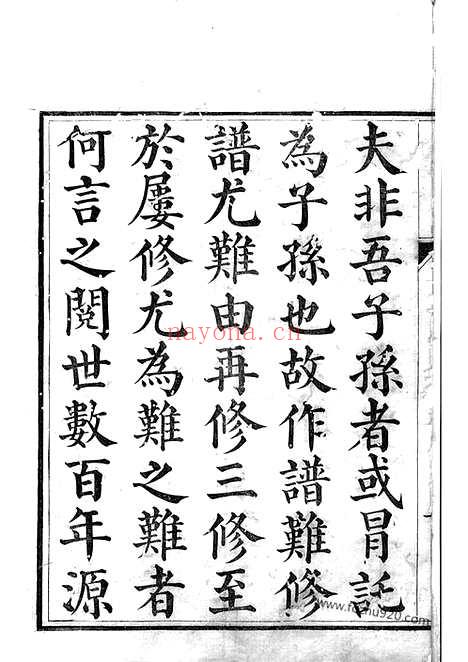 夫非吾子孫者或冐託
為子孫也故作譜難修
譜尤難由再修三修至
於屢修尤為難之難者
何言之閱世數百年源
nayona.cn